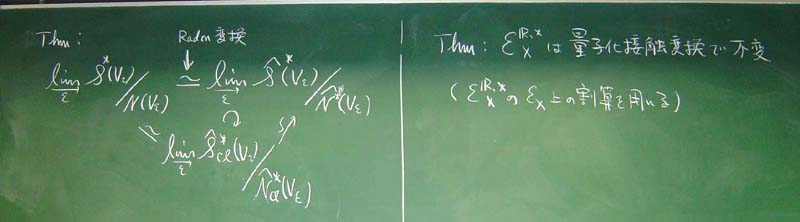 Thm: Radon変換
lim_{→ε} S^*(V_ε)/N(V_ε) ≃ lim_{→ε} Ŝ^*(V_ε)/N̂^*(V_ε)
≃ lim_{→ε} Ŝ_{cl}^*(V_ε)/N̂_{cl}^*(V_ε)
Thm: ℰ_X^{ℝ,×} は量子化接触変換で不変
(ℰ_X^{ℝ,×} の ℰ_X 上の割算を用いる)